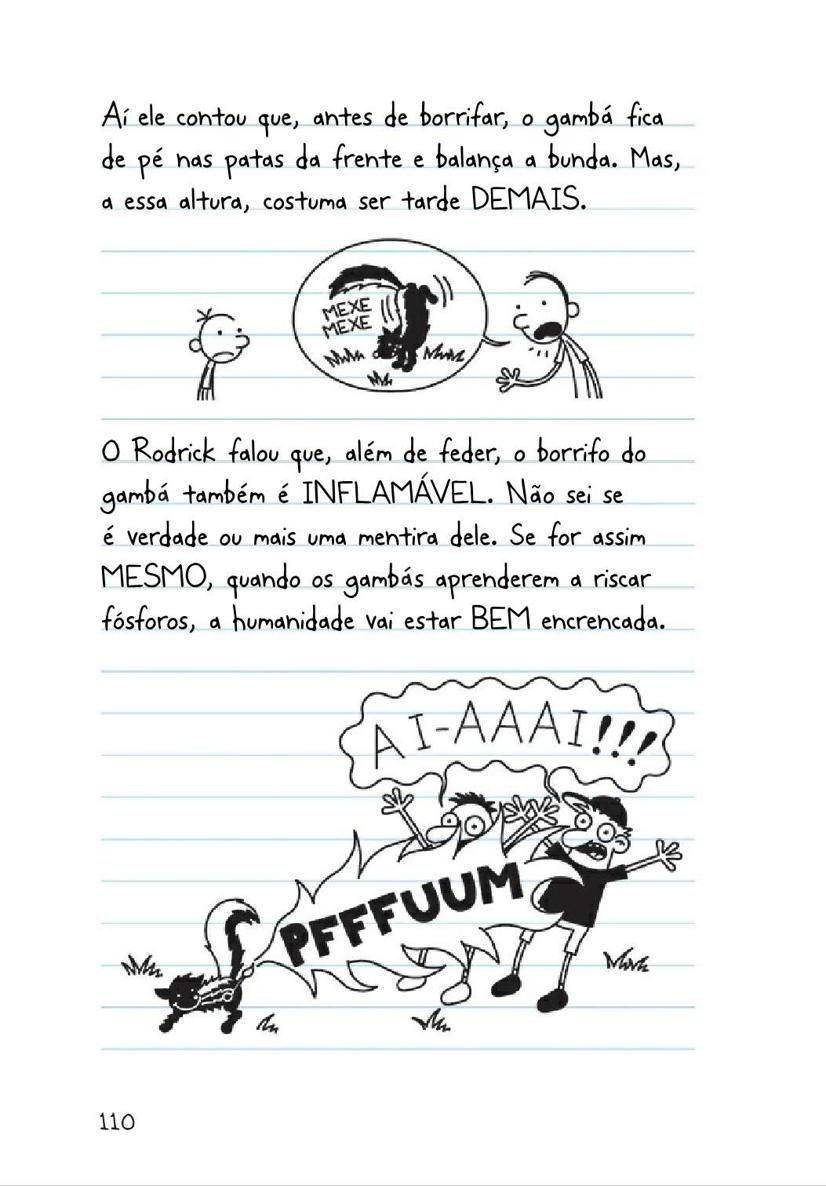 Aí ele contou que, antes de borrifar, o gambá fica
de pé nas patas da frente e balança a bunda. Mas,
a essa altura, costuma ser tarde DEMAIS.
MEXE
MEXE
O Rodrick falou que, além de feder, o borrifo do
gambá também é INFLAMÁVEL. Não sei se
é verdade ou mais uma mentira dele. Se for assim
MESMO, quando os gambás aprenderem a riscar
fósforos, a humanidade vai estar BEM encrencada.
AI-AAAI!!!
PFFFUUM
110